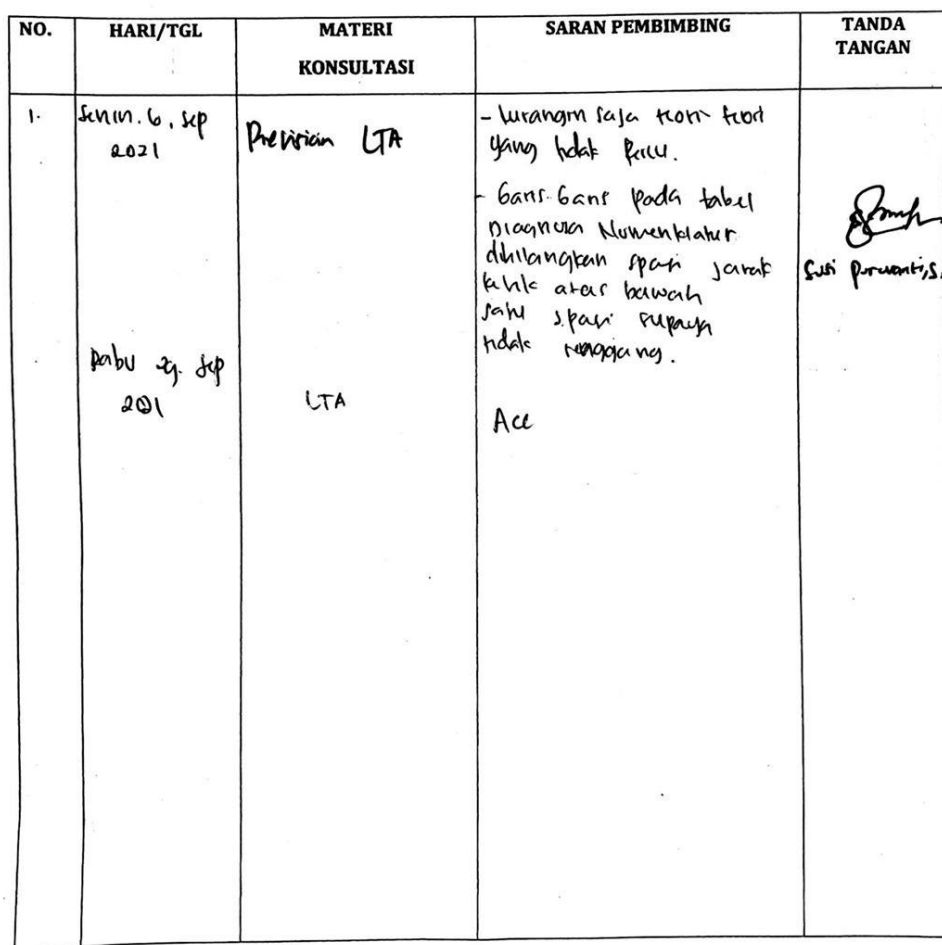 NO.
HARI/TGL
MATERI
KONSULTASI
SARAN PEMBIMBING
TANDA
TANGAN
1.
Senin. 6, sep
2021
Previsian LTA
- kurangin saja teori-teori
yang tidak perlu.
- Garis-Garis pada tabel
Diagnosa Nomenklatur
dihilangkan spasi jarak
titik atas bawah
satu spasi supaya
tidak renggang.
Susi Purwanti, S.
Rabu 29. Sep
2021
LTA
Acc